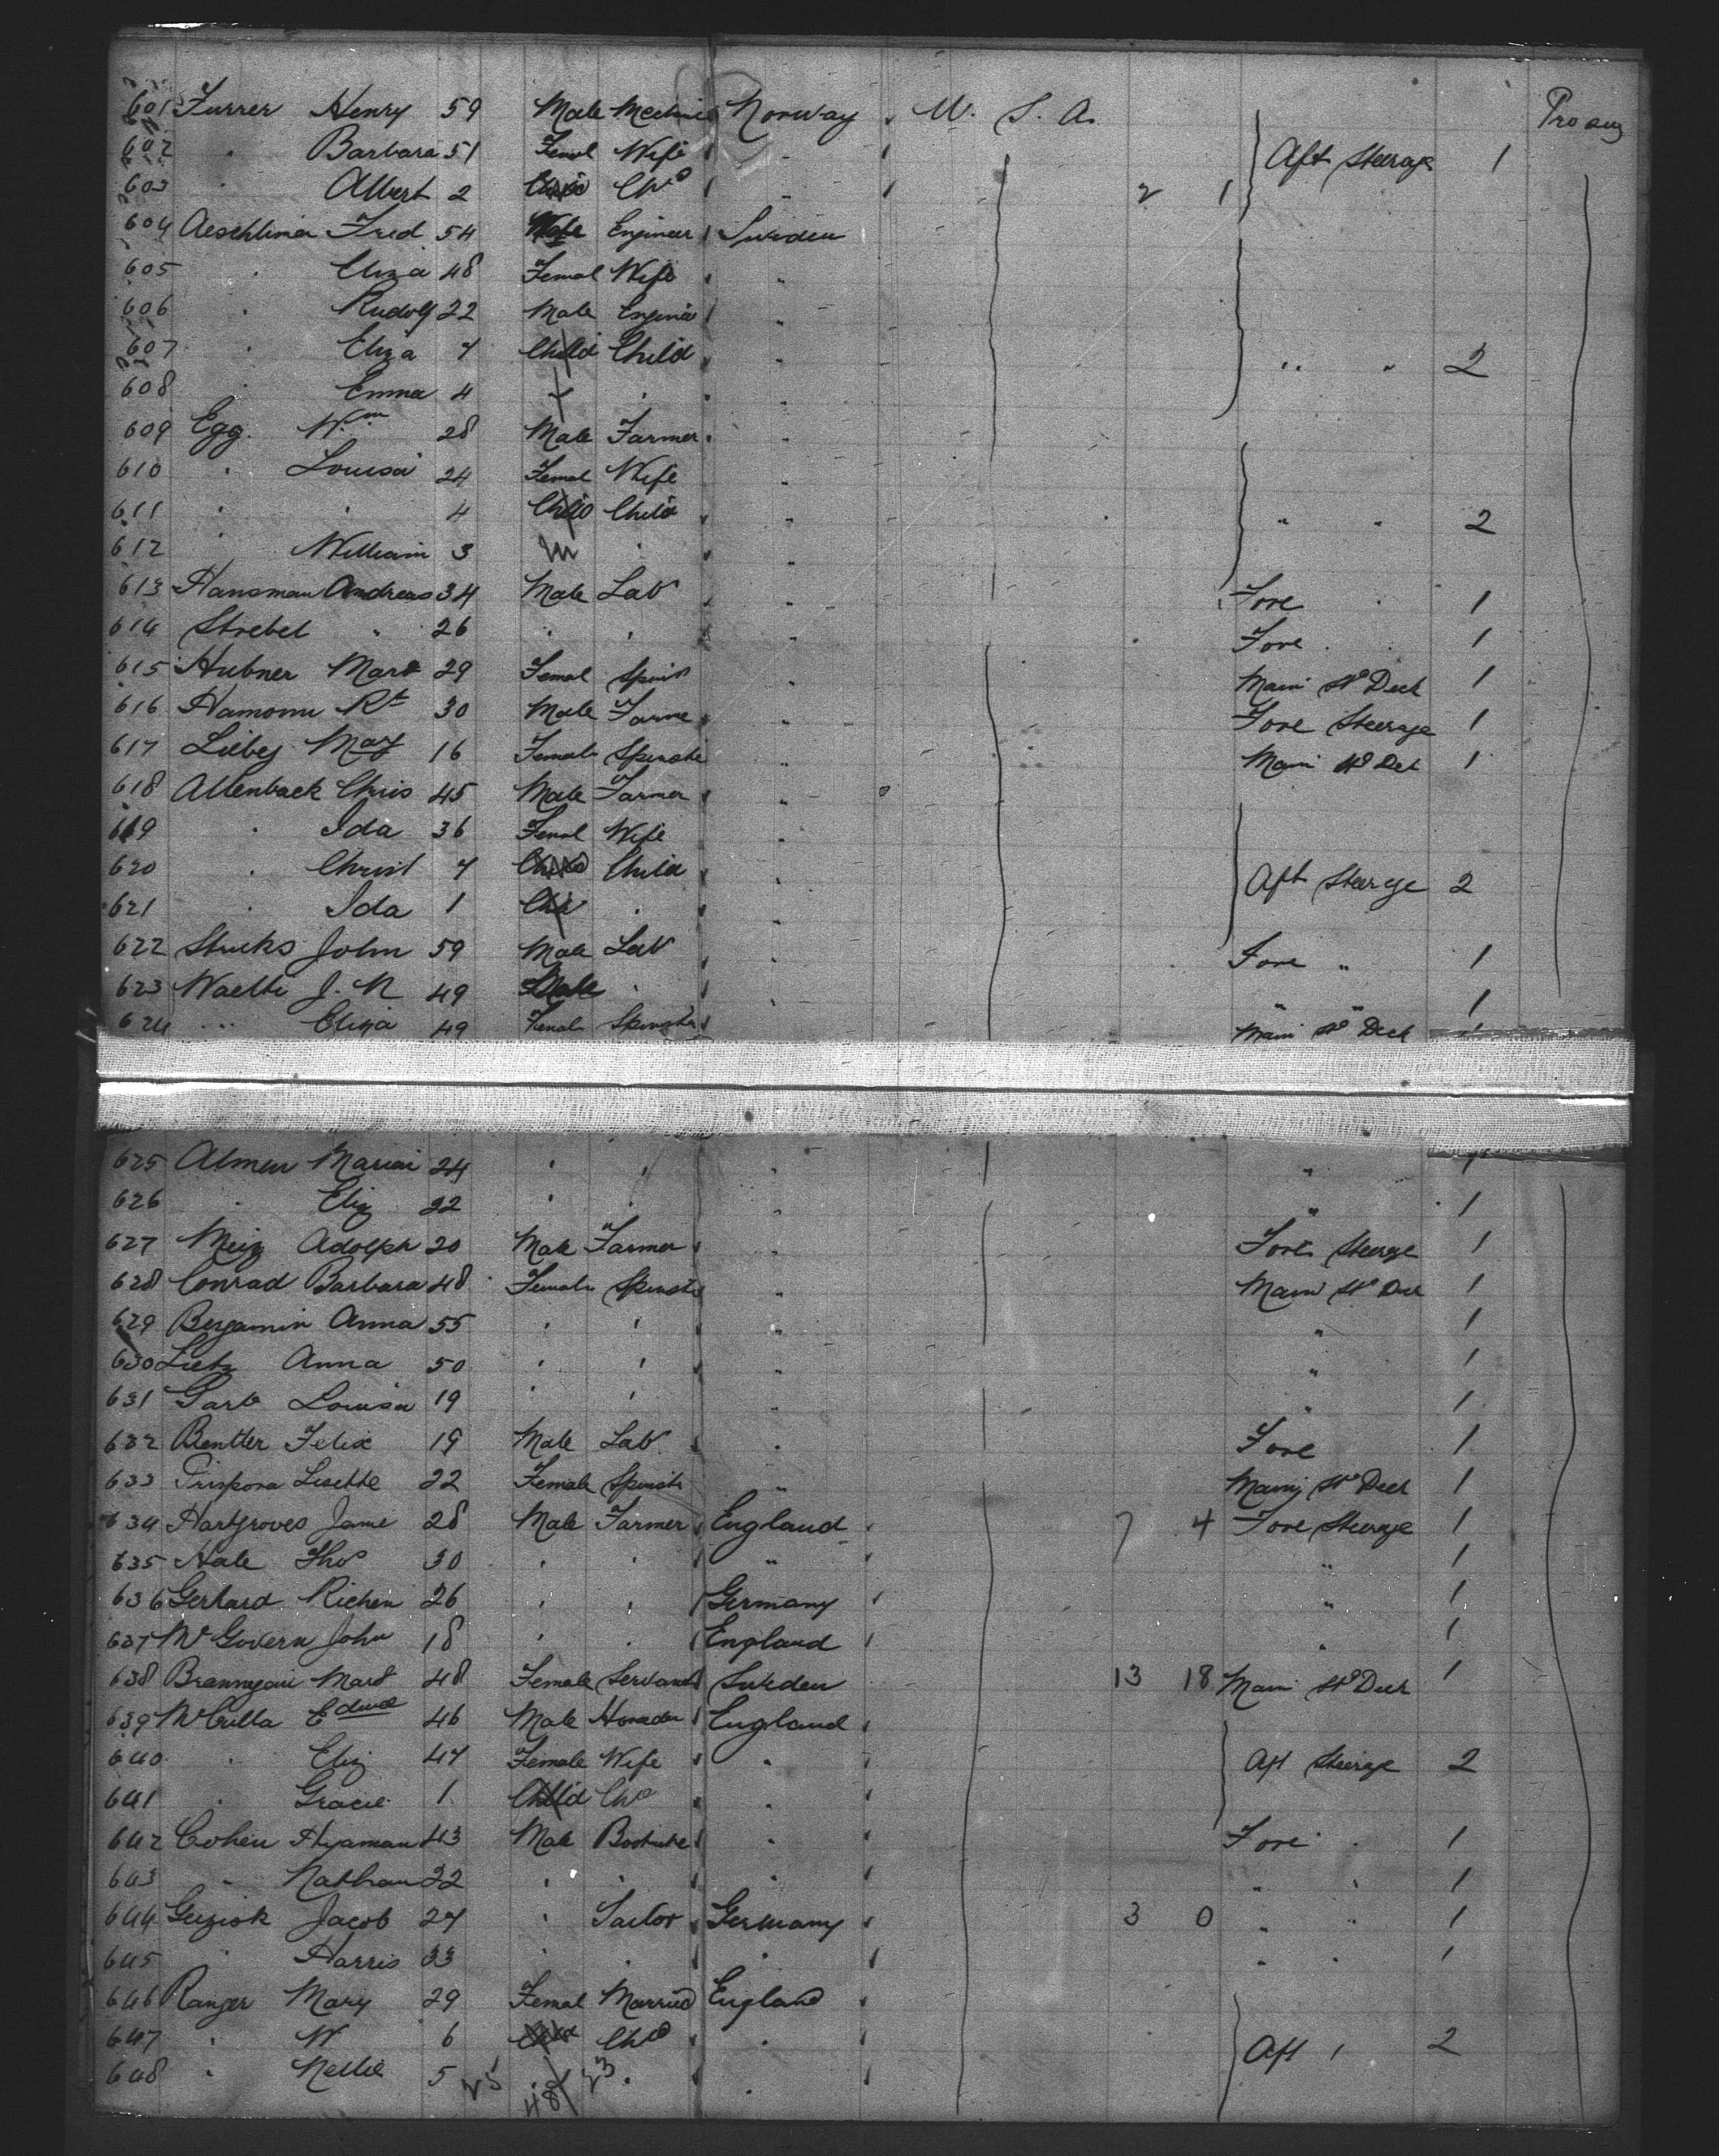 601 Furrer Henry 59 Male Mechnic Norway U. S. A. Pro aug
602 " Barbara 51 Femal Wife " Aft Steerage 1
603 " Albert 2 Chd " 2 1
604 Aeschlima Fred 54 Male Engineer Sweden
605 " Eliza 48 Femal Wife "
606 " Rudolf 22 Male Enginee "
607 " Eliza 7 Child Child " " " 2
608 " Emma 4 " "
609 Egg Wm 28 Male Farmer "
610 " Louisa 24 Femal Wife "
611 " " 4 Child Child " " " 2
612 " William 3 M " "
613 Hansman Andreas 34 Male Lab " Fore " 1
614 Strebel " 26 " " " Fore " 1
615 Hubner Mart 29 Femal Spins " Main St Deck 1
616 Hamonn Rt 30 Male Farme " Fore Steerage 1
617 Liebes Mary 16 Female Spinste " Main St Dek 1
618 Allenback Chris 45 Male Farmer "
619 " Ida 36 Femal Wife "
620 " Christ 7 Child Child " Aft Steerage 2
621 " Ida 1 Chi " "
622 Stucks John 59 Male Lab " Fore " 1
623 Waelti J. N 49 Male " " " " 1
624 " Eliza 49 Femal Spinster Main St Deck 1
625 Almen Mariai 24 " " " " 1
626 " Eliz 22 " " " " 1
627 Meiz Adolph 20 Male Farmer " Fore Steerge 1
628 Conrad Barbara 48 Female Spinst " Main St Deck 1
629 Benjamin Anna 55 " " " " 1
630 Lietz Anna 50 " " " " 1
631 Garb Louisa 19 " " " " 1
632 Bentler Felix 19 Male Lab " Fore 1
633 Prispora Lisette 22 Female Spinst " Main St Deck 1
634 Hartgroves Jame 28 Male Farmer England 7 4 Fore Steerage 1
635 Hale Thos 30 " " " " 1
636 Gerhard Richen 26 " " Germany " 1
637 McGovern John 18 " " England " 1
638 Brannigan Mart 48 Female Servant Sweden 13 18 Main St Deck 1
639 McCulla Edwd 46 Male England
640 " Eliz 47 Female Wife " Aft Steerage 2
641 " Gracie 1 Child Chd "
642 Cohen Hyaman 43 Male " Fore " 1
643 " Nathan 22 " " " " " 1
644 Guziok Jacob 27 " Sailor Germany 3 0 " " 1
645 " Harris 33 " " " " " 1
646 Ranger Mary 29 Femal Married England
647 " W 6 Chd " Aft " 2
648 " Nellie 5 25 48 23 " "